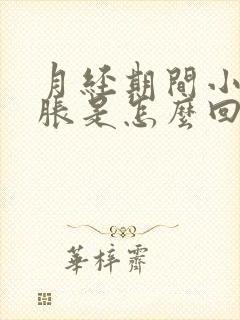 月经期間小
脹是怎麼回
華梓霽